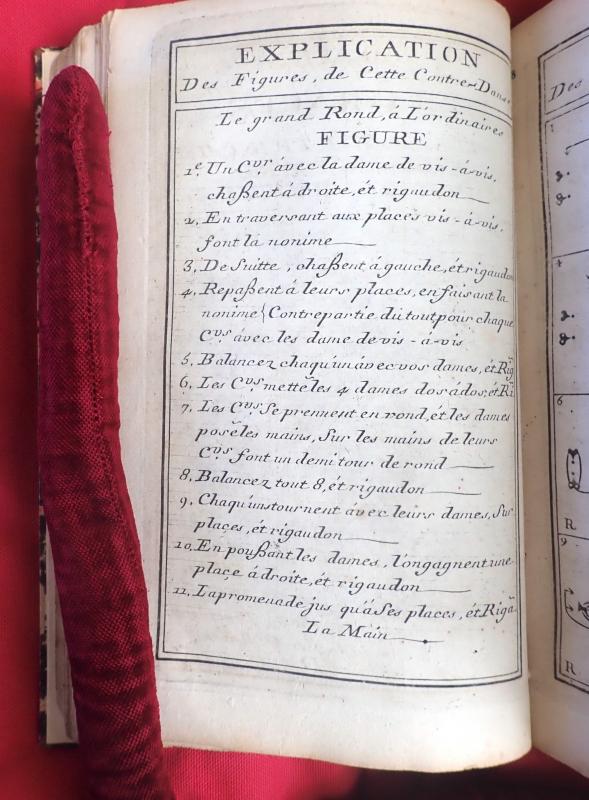 EXPLICATION
Des Figures, de Cette Contre-Danse
Le grand Rond, á L'ordinaires
FIGURE
1.e Un C.vr ávec la dame de vis-á-vis,
chaßent á droite, ét rigaudon
2, En traversant aux places vis-á-vis,
font la nonime
3, De Suitte, chaßent á gauche, ét rigaudon
4, Repaßent á leurs places, en faisant la
nonime { Contrepartie du tout pour chaque
C.vrs avec les dame de vis-á-vis
5, Balancez chaqu'un ávec vos dames, ét Rig
6, Les C.vrs mettẽ les 4 dames dos á dos, ét Ri
7, Les C.vrs Se prennent en rond, ét les dames
posẽ les mains, Sur les mains de leurs
C.vrs font un demi tour de rond
8, Balancez tout 8, ét rigaudon
9, Chaqu'uns tournent ávec leurs dames, Sur
places, ét rigaudon
10, En poußant les dames, l'ongagnent une
place á droite, ét rigaudon
11, La promenade jus qu'á Ses places, ét Riga
La Main
Des
1
4
6
R
9
R